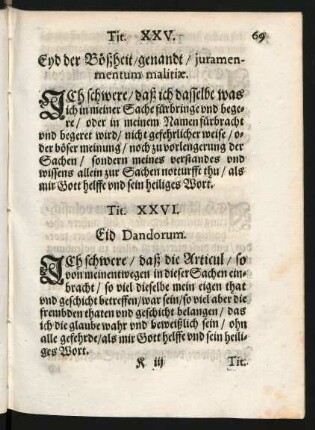 Tit. XXV. 69
Eyd der Bößheit / genandt / juramen-
mentum malitiæ.
ICh schwere / daß ich dasselbe was
ich in meiner Sache fürbringe vnd bege-
re / oder in meinem Namen fürbracht
vnd begeret wird / nicht gefehrlicher weise / o-
der böser meinung / noch zu vorlengerung der
Sachen / sondern meines verstandes vnd
wissens allein zur Sachen notturfft thu / als
mir Gott helffe vnd sein heiliges Wort.
Tit. XXVI.
Eid Dandorum.
ICh schwere / daß die Articul / so
von meinentwegen in dieser Sachen ein-
bracht / so viel dieselbe mein eigen that
vnd geschicht betreffen / war sein / so viel aber die
frembden thaten vnd geschicht belangen / das
ich die glaube wahr vnd beweißlich sein / ohn
alle gefehrde / als mir Gott helffe vnd sein heili-
ges Wort.
K iij Tit.